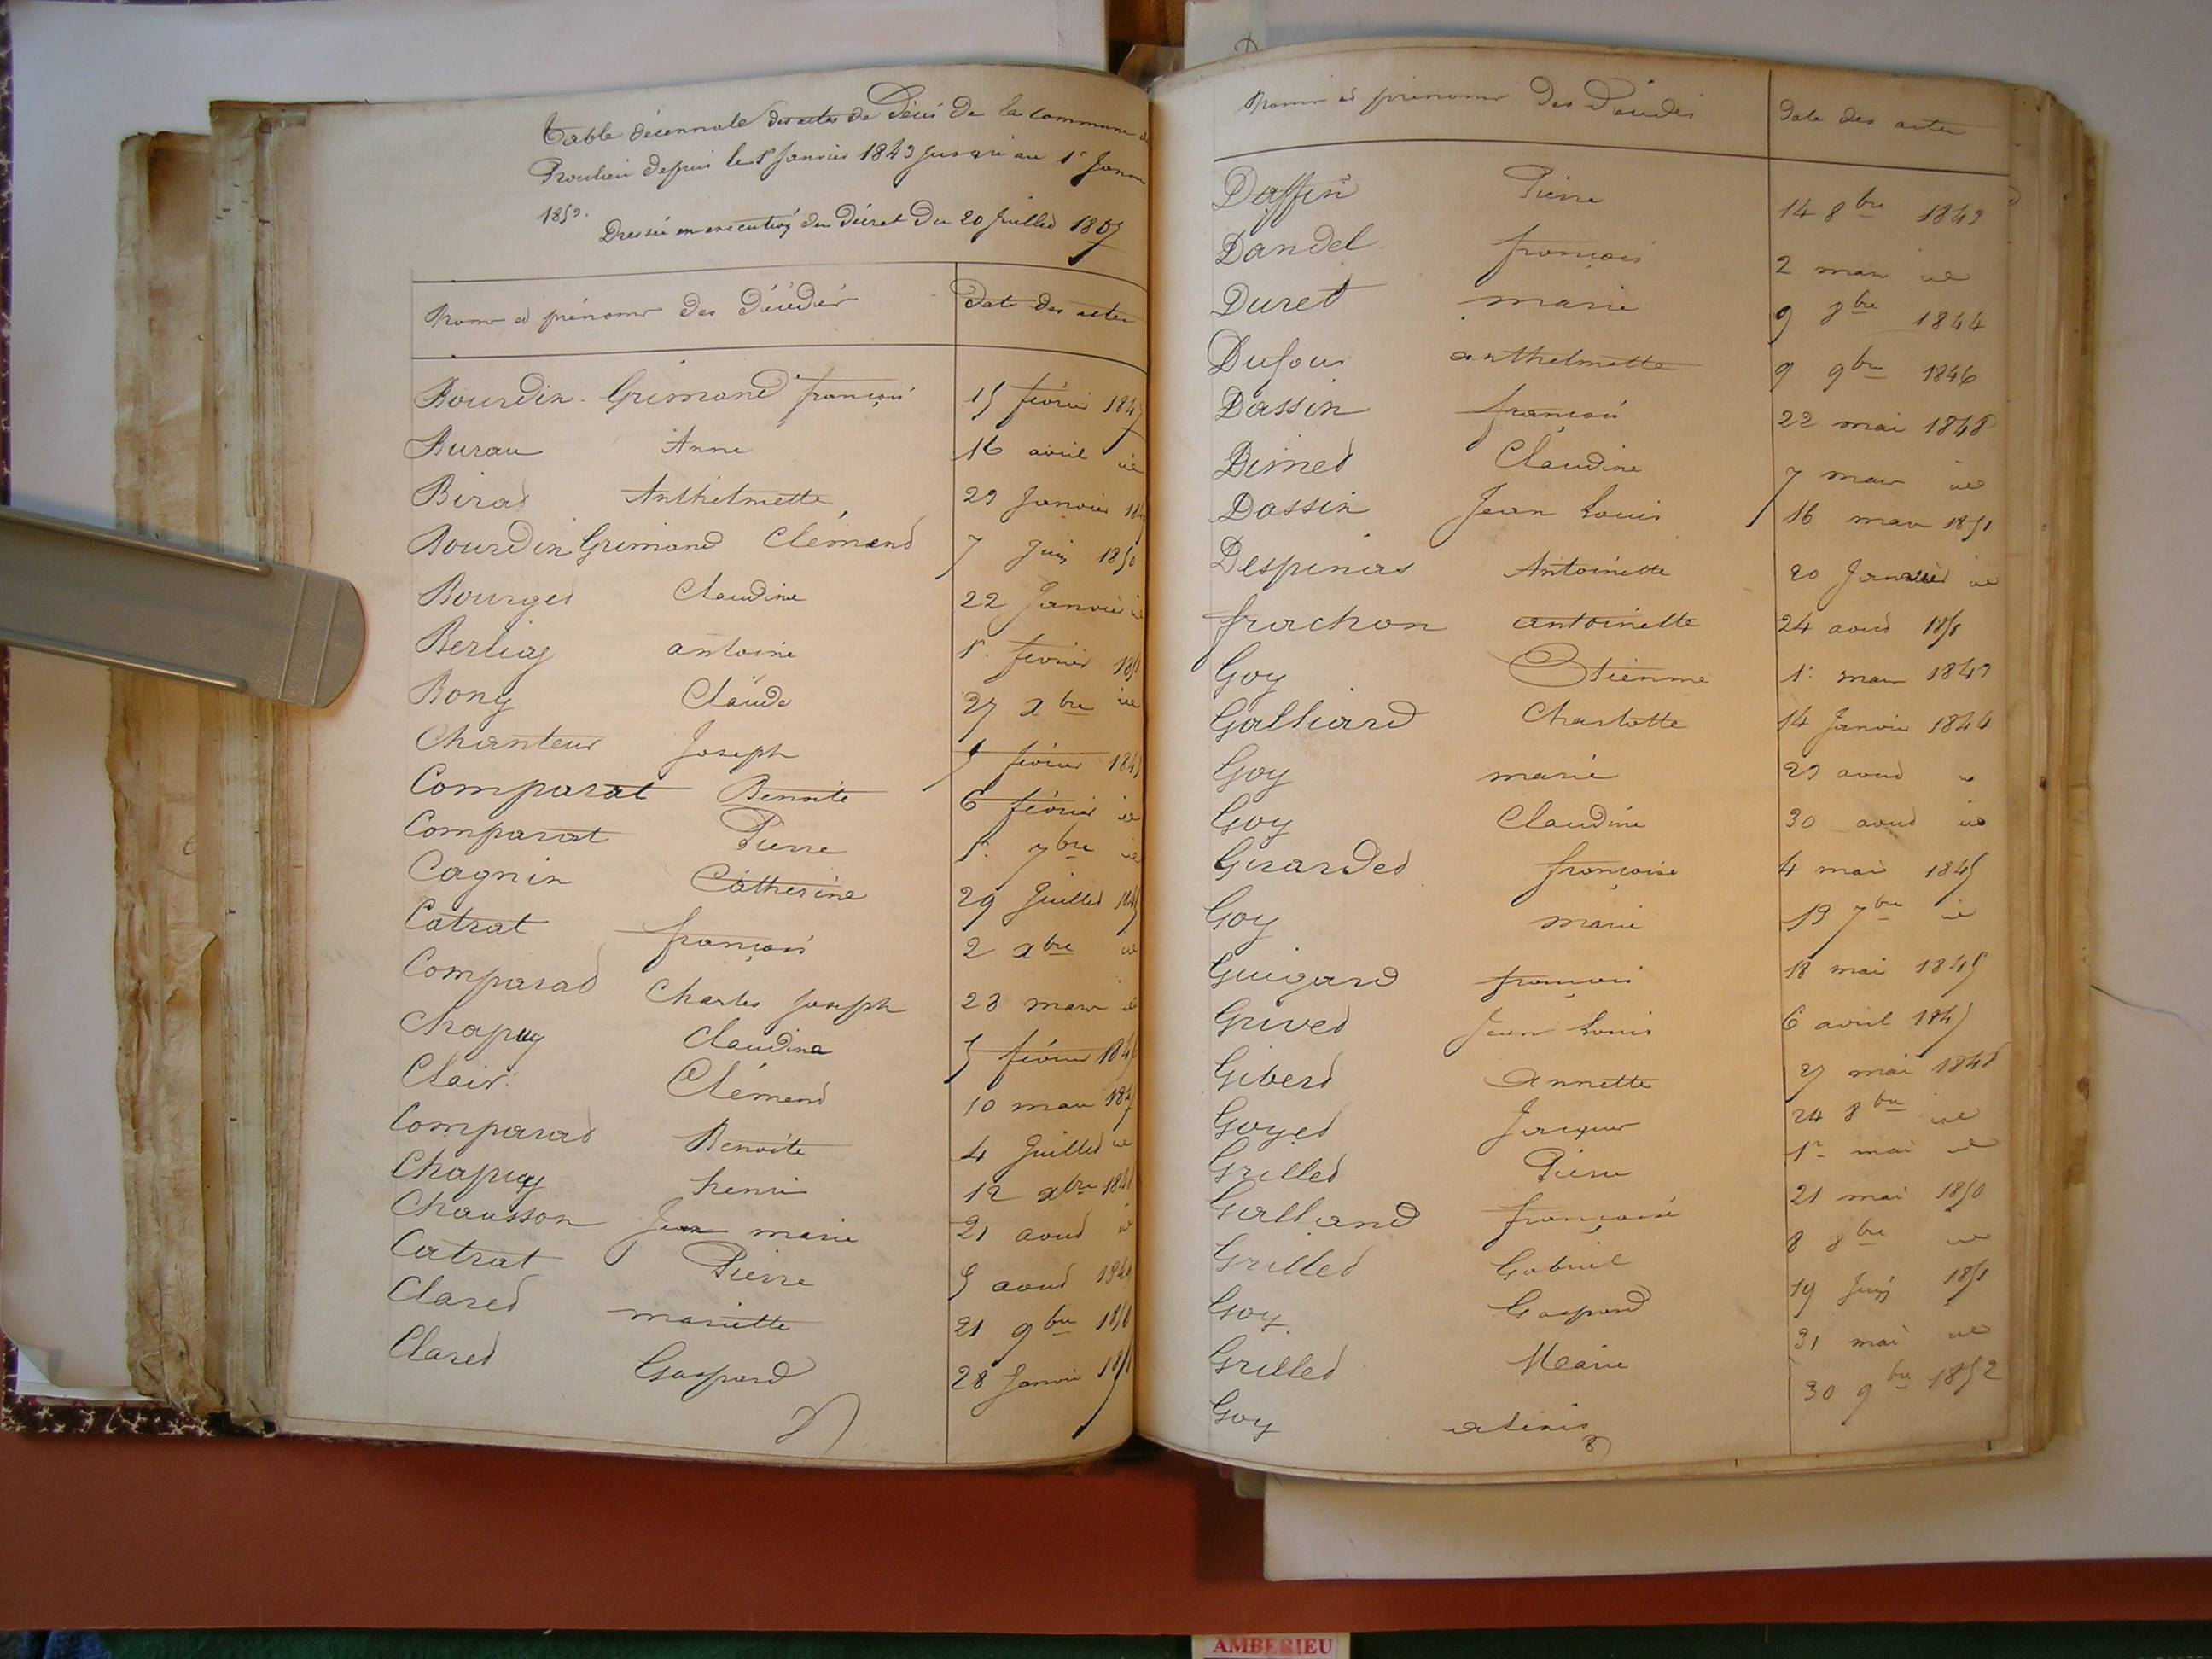 Table décennale des actes de Décès de la commune de
Proulieu depuis le 1r Janvier 1843 jusqu'au 1r Janvier
1853.
Dressée en execution du Décret du 20 Juillet 1807
Noms et prénoms des Décédés Date des actes
Bourdin Grimond françois 15 février 184
Burau Anne 16 avril id
Birat Anthelmette 29 Janvier 184
Bourdin Grimond Clément 7 Juin 1850
Bourget Claudine 22 Janvier id
Berlioz antoine 1r février 185
Bony Claude 27 xbre id
Chanteur Joseph 5 février 1843
Comparat Benoite 6 février id
Comparat Pierre 1r 7bre id
Cagnin Catherine 29 Juillet 1845
Catrat françois 2 xbre id
Comparat Charles Joseph 23 mars id
Chapuy Claudine 5 février 1846
Clair Clément 10 mars 1847
Comparat Benoite 4 Juillet id
Chapuy henri 12 xbre 1848
Chausson Jean marie 21 aout id
Catrat Pierre 5 aout 1849
Claret mariette 21 9bre 1850
Claret Gaspard 28 Janvier 1851
Noms et prénoms des Décédés Date des actes
Daffin Pierre 14 8bre 1843
Dandel françois 2 mars id
Duret marie 9 8bre 1844
Dufour anthelmette 9 9bre 1846
Dassin françois 22 mai 1848
Dimet Claudine 7 mars id
Dassin Jean Louis 16 mars 1851
Despinas Antoinette 20 Janvier id
frachon antoinette 24 aout 1851
Goy Etienne 1r mars 1843
Galliard Charlotte 14 Janvier 1844
Goy marie 29 aout id
Goy Claudine 30 aout id
Girardet françoise 4 mai 1845
Goy marie 19 7bre id
Guigard françois 18 mai 1845
Grivet Jean Louis 6 avril 1847
Gibert annette 27 mai 1848
Goyet Jacques 24 8bre id
Grillet Pierre 1r mai id
Galland françoise 21 mai 1850
Grillet Gabriel 8 8bre id
Goy Gaspard 19 Juin 1851
Grillet Marie 31 mai id
Goy 30 9bre 1852
AMBERIEU